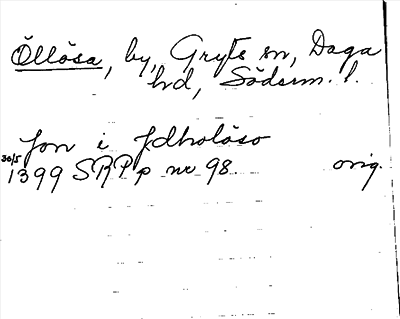 Öllösa, by, Gryts sn, Daga
hd, Söderm. l.
Jon i fdholöso
30/5 1399 SRP p nr 98. orig.